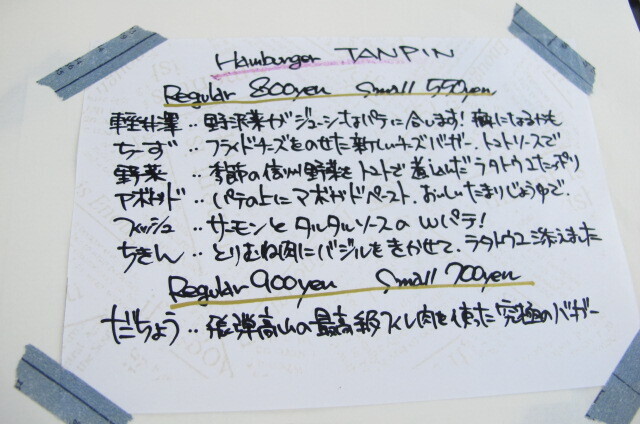 Hamburger TANPIN
Regular 800yen Small 550yen
軽井澤‥野沢菜がジューシーなパテに合います！癖になるかも
ちーず‥フライドチーズをのせた新しいチーズバーガー、トマトソースで
野菜‥季節の信州野菜をトマトで煮込んだラタトゥユたっぷり
アボカド‥パテの上にアボカドペースト、おいしいたまりじょうゆで、
フィッシュ‥サーモンとタルタルソースのWパテ！
ちきん‥とりむね肉にバジルをきかせて、ラタトゥユ添えました
Regular 900yen Small 700yen
だちょう‥飛弾高山の最高級フィレ肉を使った究極のバーガー